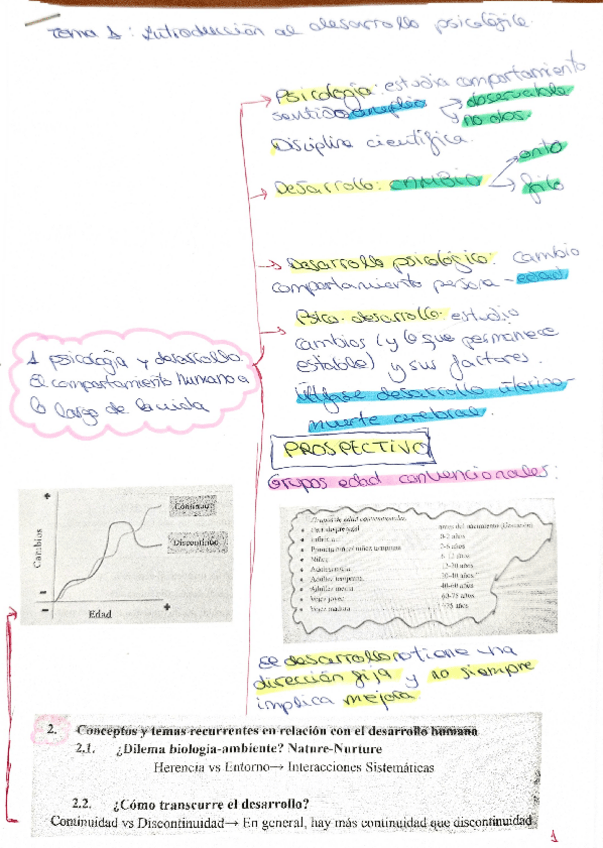 Tema 1: Introducción al desarrollo psicológico.
Psicología: estudia comportamiento
sentido amplio → observable
no obs.
Disciplina científica.
Desarrollo: CAMBIO → onto
filo
Desarrollo psicológico: cambio
comportamiento persona - edad
Psico. desarrollo: estudio
cambios (y lo que permanece
estable) y sus factores.
desarrollo uterino-
muerte cerebral.
1 psicología y desarrollo.
El comportamiento humano a
lo largo de la vida
PROSPECTIVO
Grupos edad convencionales:
Continuo
Discontinuo
Cambios
Edad
Grupos de edad convencionales
antes del nacimiento (Gestación)
0-2 años
2-6 años
Niñez 6-12 años
Adolescencia 12-20 años
Adultez temprana 20-40 años
Adultez media 40-60 años
Vejez joven 60-75 años
Vejez madura >75 años
El desarrollo no tiene una
dirección fija y no siempre
implica mejora
2. Conceptos y temas recurrentes en relación con el desarrollo humano
2.1. ¿Dilema biología-ambiente? Nature-Nurture
Herencia vs Entorno→ Interacciones Sistemáticas
2.2. ¿Cómo transcurre el desarrollo?
Continuidad vs Discontinuidad→ En general, hay más continuidad que discontinuidad
1